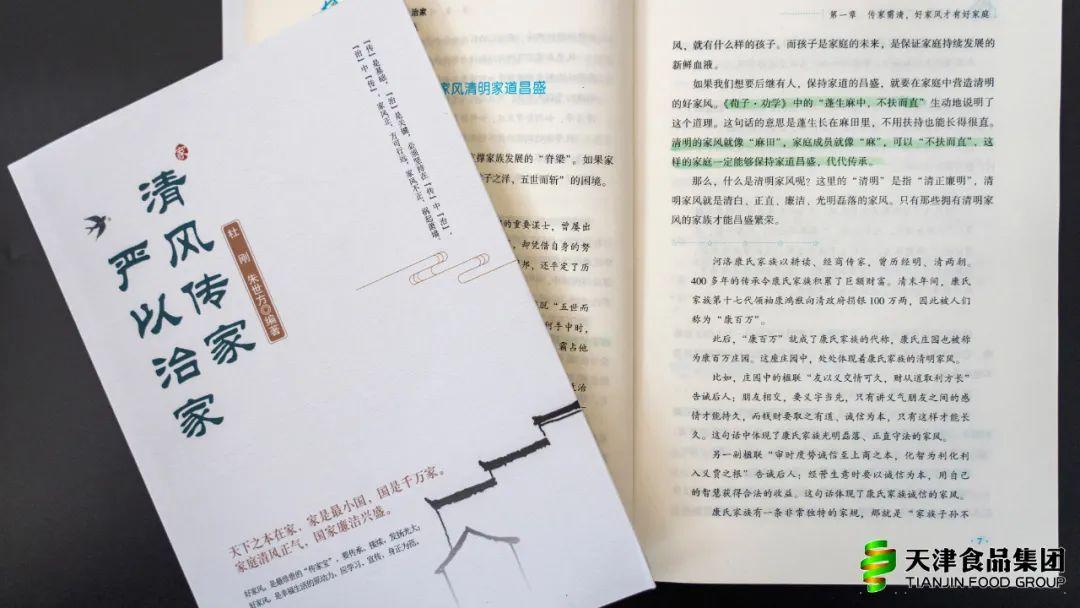 清风传家
严以治家
家
杜 刚 朱世方◎编著
“传”是基础,“治”是关键,必须坚持在“传”中“治”,
“治”中“传”,家风正,方可行远,家风不正,祸起萧墙。
天下之本在家,家是最小国,国是千万家。
家庭清风正气,国家廉洁兴盛。
好家风,是最珍贵的“传家宝”,要传承、接续、发扬光大;
好家风,是幸福生活的原动力,应学习、宣传、身正为范。
治家
家风清明家道昌盛
撑家族发展的“脊梁”。如果家
子之泽,五世而斩”的困境。
的重要谋士,曾屡出
却凭借自身的努
邦,还平定了历
“五世而
何手中时,
霸占他
治
第一章 传家需清,好家风才有好家庭
风,就有什么样的孩子。而孩子是家庭的未来,是保证家庭持续发展的
新鲜血液。
如果我们想要后继有人,保持家道的昌盛,就要在家庭中营造清明
的好家风。《荀子·劝学》中的“蓬生麻中,不扶而直”生动地说明了
这个道理。这句话的意思是蓬生长在麻田里,不用扶持也能长得很直。
清明的家风就像“麻田”,家庭成员就像“麻”,可以“不扶而直”,这
样的家庭一定能够保持家道昌盛,代代传承。
那么,什么是清明家风呢?这里的“清明”是指“清正廉明”,清
明家风就是清白、正直、廉洁、光明磊落的家风。只有那些拥有清明家
风的家族才能昌盛繁荣。
河洛康氏家族以耕读、经商传家,曾历经明、清两朝。
400 多年的传承令康氏家族积累了巨额财富。清末年间,康氏
家族第十七代领袖康鸿猷向清政府捐银 100 万两,因此被人们
称为“康百万”。
此后,“康百万”就成了康氏家族的代称,康氏庄园也被称
为康百万庄园。这座庄园中,处处体现着康氏家族的清明家风。
比如,庄园中的楹联“友以义交情可久,财从道取利方长”
告诫后人:朋友相交,要义字当先,只有讲义气朋友之间的感
情才能持久,而钱财要取之有道、诚信为本,只有这样才能长
久。这句话中体现了康氏家族光明磊落、正直守法的家风。
另一副楹联“审时度势诚信至上商之本,化智为利化利
入义贾之根”告诫后人:经营生意时要以诚信为本,用自己
的智慧获得合法的收益。这句话体现了康氏家族诚信的家风。
康氏家族有一条非常独特的家规,那就是“家族子孙不
·7·
天津食品集团
TIANJIN FOOD GROUP